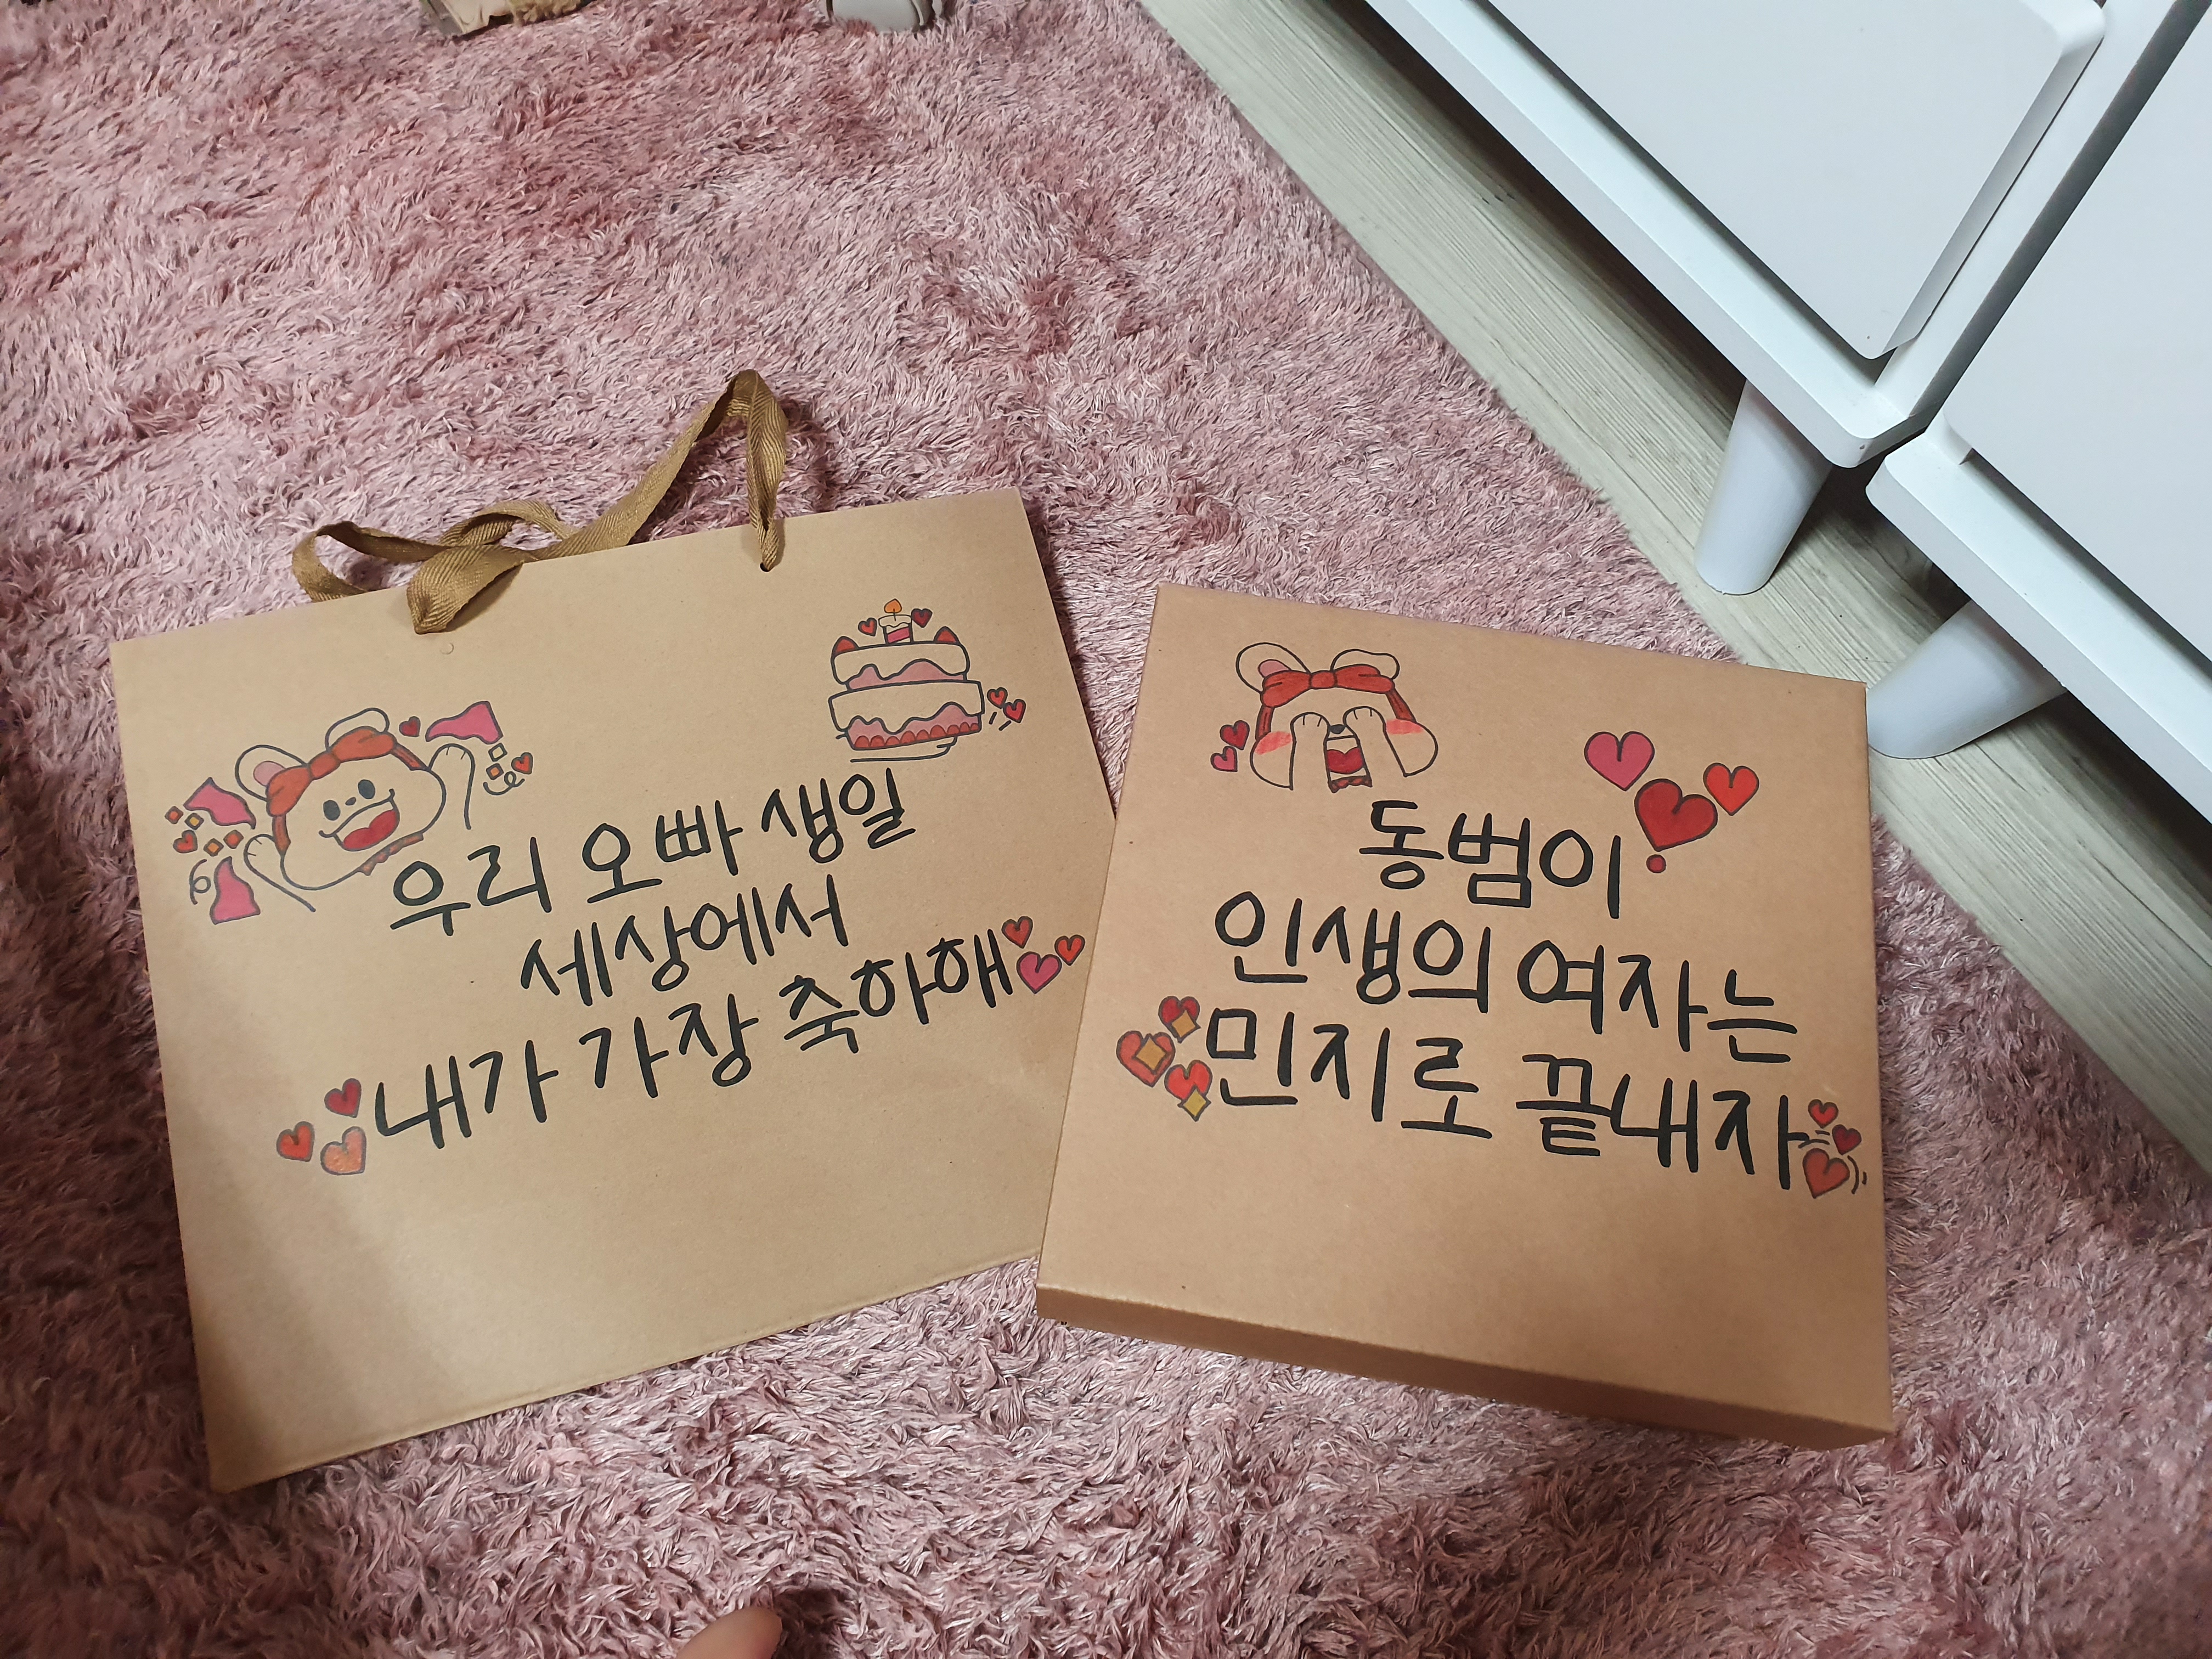 우리 오빠 생일
세상에서
내가 가장 축하해
동범이
인생의 여자는
민지로 끝내자